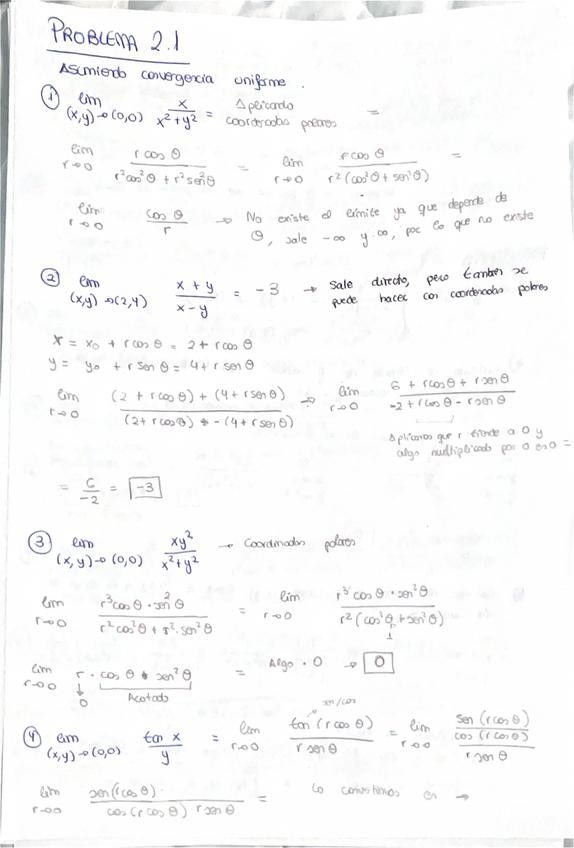 PROBLEMA 2.1
Asumiendo convergencia uniforme.
① lim (x,y)→(0,0) x / (x² + y²) = Aplicando coordenadas polares =
lim r→0 r cos θ / (r² cos² θ + r² sen² θ) = lim r→0 r cos θ / (r² (cos² θ + sen² θ)) =
lim r→0 cos θ / r → No existe el límite ya que depende de
θ, sale -∞ y ∞, por lo que no existe
② lim (x,y)→(2,4) (x + y) / (x - y) = -3 → Sale directo, pero también se
puede hacer con coordenadas polares
x = x₀ + r cos θ = 2 + r cos θ
y = y₀ + r sen θ = 4 + r sen θ
lim r→0 ((2 + r cos θ) + (4 + r sen θ)) / ((2 + r cos θ) - (4 + r sen θ)) → lim r→0 (6 + r cos θ + r sen θ) / (-2 + r cos θ - r sen θ)
Aplicamos que r tiende a 0 y
algo multiplicado por 0 es 0 =
= 6 / -2 = -3
③ lim (x,y)→(0,0) xy² / (x² + y²) → Coordenadas polares
lim r→0 r³ cos θ · sen² θ / (r² cos² θ + r² · sen² θ) = lim r→0 r³ cos θ · sen² θ / (r² (cos² θ + sen² θ))
1
lim r→0 r · cos θ · sen² θ = Algo · 0 → 0
↓ 0 Acotado
sen/cos
④ lim (x,y)→(0,0) tan x / y = lim r→0 tan (r cos θ) / (r sen θ) = lim r→0 (sen (r cos θ) / cos (r cos θ)) / (r sen θ)
lim r→0 sen (r cos θ) / (cos (r cos θ) r sen θ) = lo convertimos en →